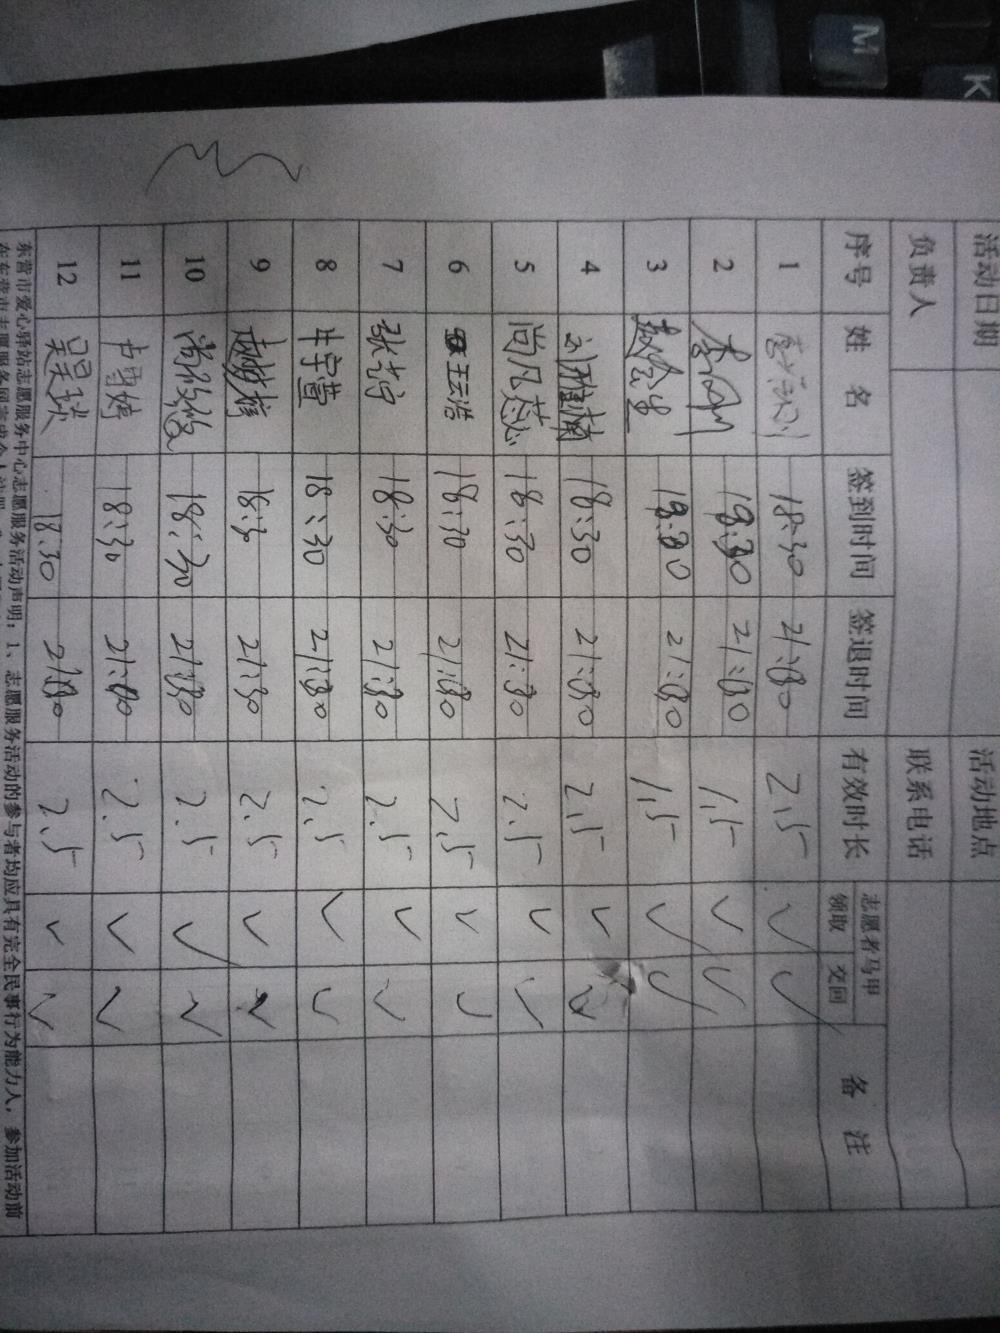 M
K
活动日期 活动地点
负责人 联系电话
序号 姓 名 签到时间 签退时间 有效时长 志愿者马甲 备 注
领取 交回
1 18:30 21:30 2.5 ✓ ✓
2 21:30 1.5 ✓ ✓
3 21:30 1.5 ✓ ✓
4 刘雅楠 18:30 21:30 2.5 ✓ ✓
5 尚凡蕊 18:30 21:30 2.5 ✓ ✓
6 王云浩 18:30 21:30 2.5 ✓ ✓
7 18:30 21:30 2.5 ✓ ✓
8 牛宇萱 18:30 21:30 2.5 ✓ ✓
9 18:3 21:30 2.5 ✓ ✓
10 18:30 21:30 2.5 ✓ ✓
11 卢雪婷 18:30 2.5 ✓ ✓
12 18:30 2.5 ✓ ✓
东营市爱心驿站志愿服务中心志愿服务活动声明：1、志愿服务活动的参与者均应具有完全民事行为能力人，参加活动前